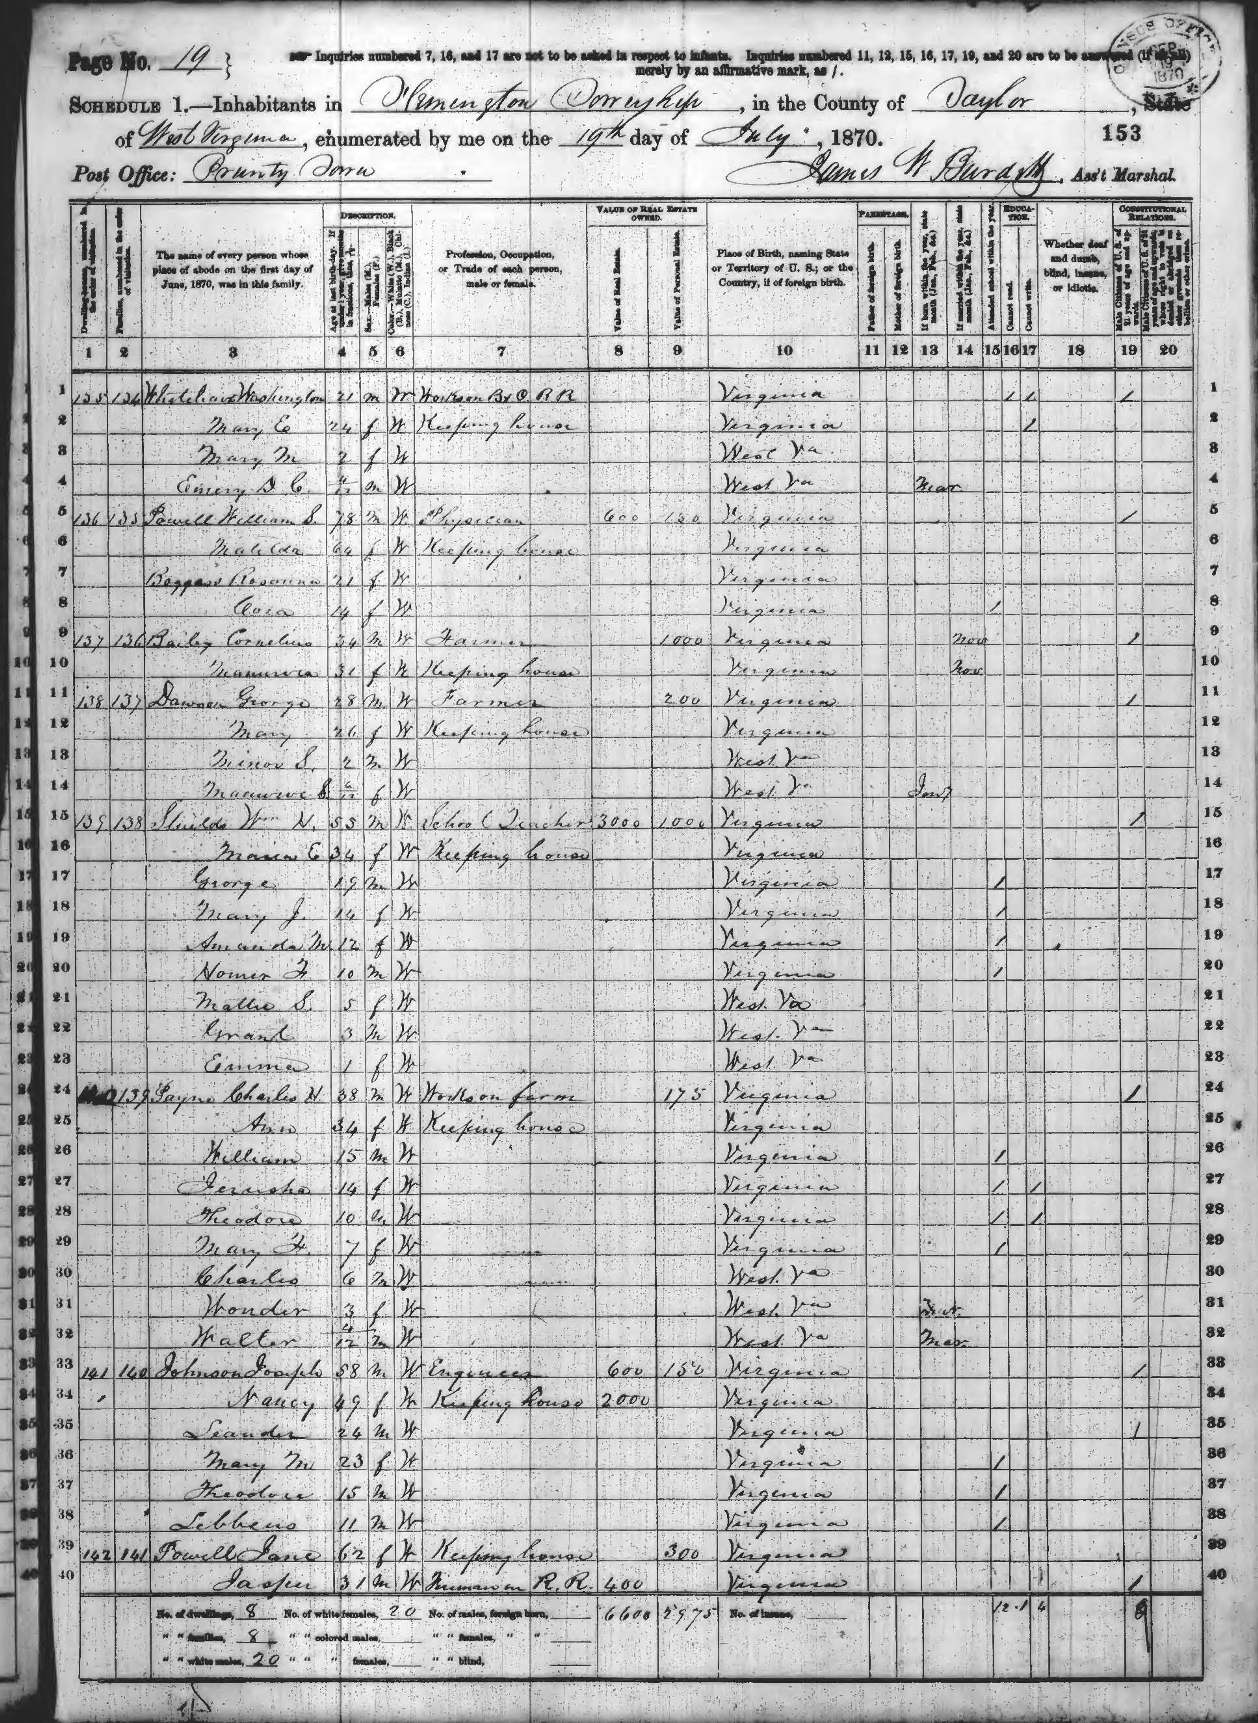 Page No. 19 } Inquiries numbered 7, 16, and 17 are not to be asked in respect to infants. Inquiries numbered 11, 12, 15, 16, 17, 19, and 20 are to be answered (if at all)
merely by an affirmative mark, as /.
SCHEDULE 1.—Inhabitants in Flemington Township, in the County of Taylor, State
of West Virginia, enumerated by me on the 19th day of July, 1870. 153
Post Office: Prunty Town James W Burdett, Ass't Marshal.
DESCRIPTION. VALUE OF REAL ESTATE OWNED. PARENTAGE. EDUCATION. CONSTITUTIONAL RELATIONS.
Dwelling-houses, numbered in the order of visitation.
Families, numbered in the order of visitation.
The name of every person whose place of abode on the first day of June, 1870, was in this family.
Sex.—Males (M.), Females (F.)
Profession, Occupation, or Trade of each person, male or female.
Value of Real Estate.
Value of Personal Estate.
Place of Birth, naming State or Territory of U. S.; or the Country, if of foreign birth.
Father of foreign birth.
Mother of foreign birth.
If born within the year, state month (Jan., Feb., &c.)
If married within the year, state month (Jan., Feb., &c.)
Attended school within the year.
Cannot read.
Cannot write.
Whether deaf and dumb, blind, insane, or idiotic.
1 2 3 4 5 6 7 8 9 10 11 12 13 14 15 16 17 18 19 20
1 135 134 Whitehair Washington 21 m W Works on B & O. R R Virginia / / / 1
2 Mary E 24 f W Keeping house Virginia / 2
3 Mary M 2 f W West Va 3
4 Emery D C. m W West Va Mar 4
5 136 135 Powell William S. 78 m W Physician 600 150 Virginia / 5
6 Matilda 64 f W Keeping house Virginia 6
7 Boggess Rosanna 21 f W Virginia 7
8 Cora 14 f W Virginia / 8
9 137 136 Bailey Cornelius 34 m W Farmer 1000 Virginia Nov / 9
10 31 f W Keeping house Virginia Nov 10
11 138 137 Dawson George 28 M W Farmer 200 Virginia / 11
12 Mary 26 f W Keeping house Virginia 12
13 Minor S. 2 m W West Va 13
14 f W West Va 14
15 139 138 Shields Wm H. 55 m W School Teacher 3000 1000 Virginia / 15
16 Maria E 34 f W Keeping house Virginia 16
17 George 19 m W Virginia / 17
18 Mary J. 14 f W Virginia / 18
19 Amanda M. 12 f W Virginia / 19
20 Homer F 10 m W Virginia / 20
21 Mattie S. 5 f W West Va 21
22 Grant 3 m W West Va 22
23 Emma 1 f W West Va 23
24 140 139 Payne Charles H 38 m W Works on farm 175 Virginia / 24
25 Ann 34 f W Keeping house Virginia 25
26 William 15 m W Virginia / 26
27 Jerusha 14 f W Virginia / / 27
28 Theodore 10 m W Virginia / / 28
29 Mary F. 7 f W Virginia / 29
30 Charles 6 m W West Va 30
31 Wonder 3 f W West Va 31
32 Walter 4/12 m W West Va Mar 32
33 141 140 Johnson Joseph 58 m W Engineer 600 150 Virginia / 33
34 Nancy 49 f W Keeping house 2000 Virginia 34
35 Leander 24 m W Virginia / 35
36 Mary M 23 f W Virginia / 36
37 Theodore 15 m W Virginia / 37
38 Lebbeus 11 m W Virginia / 38
39 142 141 Powell Jane 62 f W Keeping house 300 Virginia 39
40 Jasper 31 m W Fireman on R. R. 400 Virginia / 40
No. of dwellings, 8 No. of white females, 20 No. of males, foreign born, 6600 2975 No. of insane, 12 1 4 8
" " families, 8 " " colored males, " " females, " "
" " white males, 20 " " " females, " " blind,